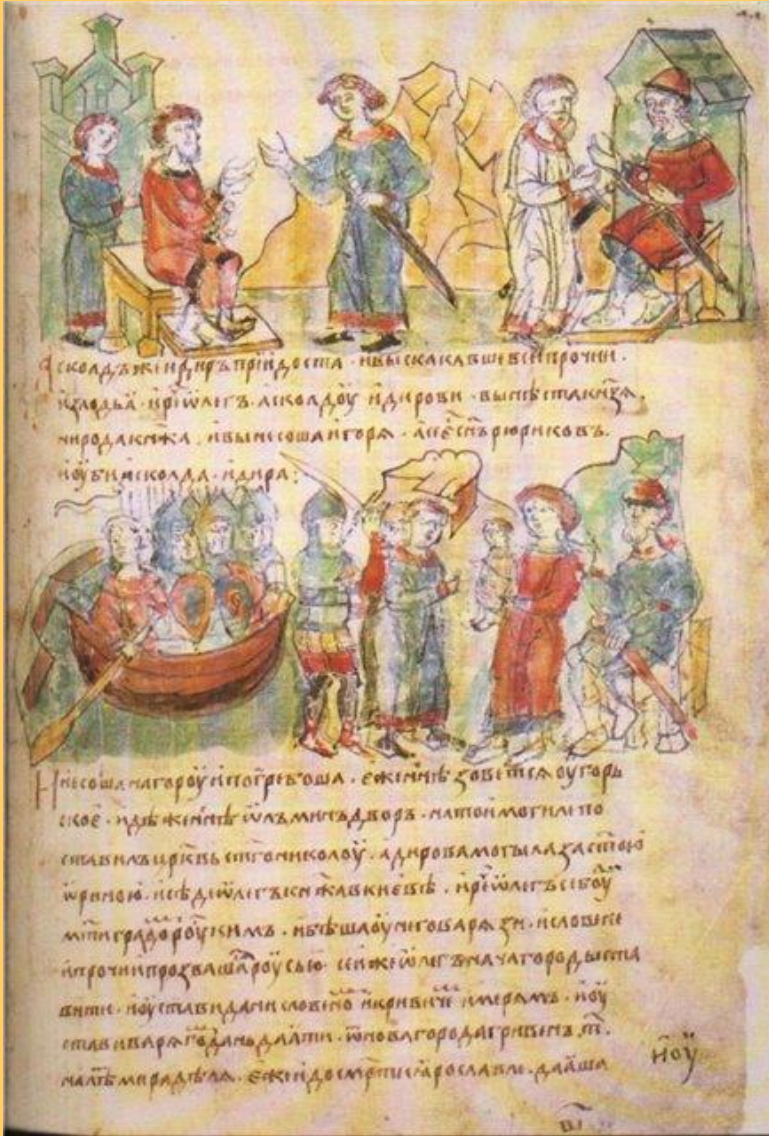 Асколдъ же и диръ придоста · и выскакавше вси прочии ·
изъ лодьа · и рч҃е ѡлегъ асколдоу и дирови · вы нѣста кнѧзѧ ·
ни рода кнѧжа · и вынесоша игорѧ · а се е҃ сн҃ъ рюриковъ ·
и оубиша асколда и дира :
И несоша на гороу и погребоша · еже ннѣ зоветсѧ оугорь
ское · идѣже ннѣ ѡлъминъ дворъ · на тои могиле по
ставилъ црк҃вь ст҃го николоу · а дирова могыла за ст҃ою
ѡриною · и сѣде ѡлегъ кнѧжа в киевѣ · и рч҃е ѡлегъ се боу
мт҃и градо роускимъ · и бѣша оу него варѧзи · и словене
и прочии прозвашасѧ роусью · сеи же ѡлегъ нача городы ста
вити · и оустави дани словено и кривиче и мерѧмъ · и оу
стави варѧго дань даѧти · ѿ новагорода гривенъ т҃ ·
на лѣ мира дѣлѧ · еже и до смр҃ти ѧрославле · даѧша
ноу